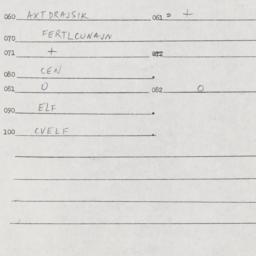 060 AXTDRAJSIK 061 = +
070 FERTLCUNAJN
071 + 072
080 CEN
081 O 082 O
090 ELF
100 CVELF